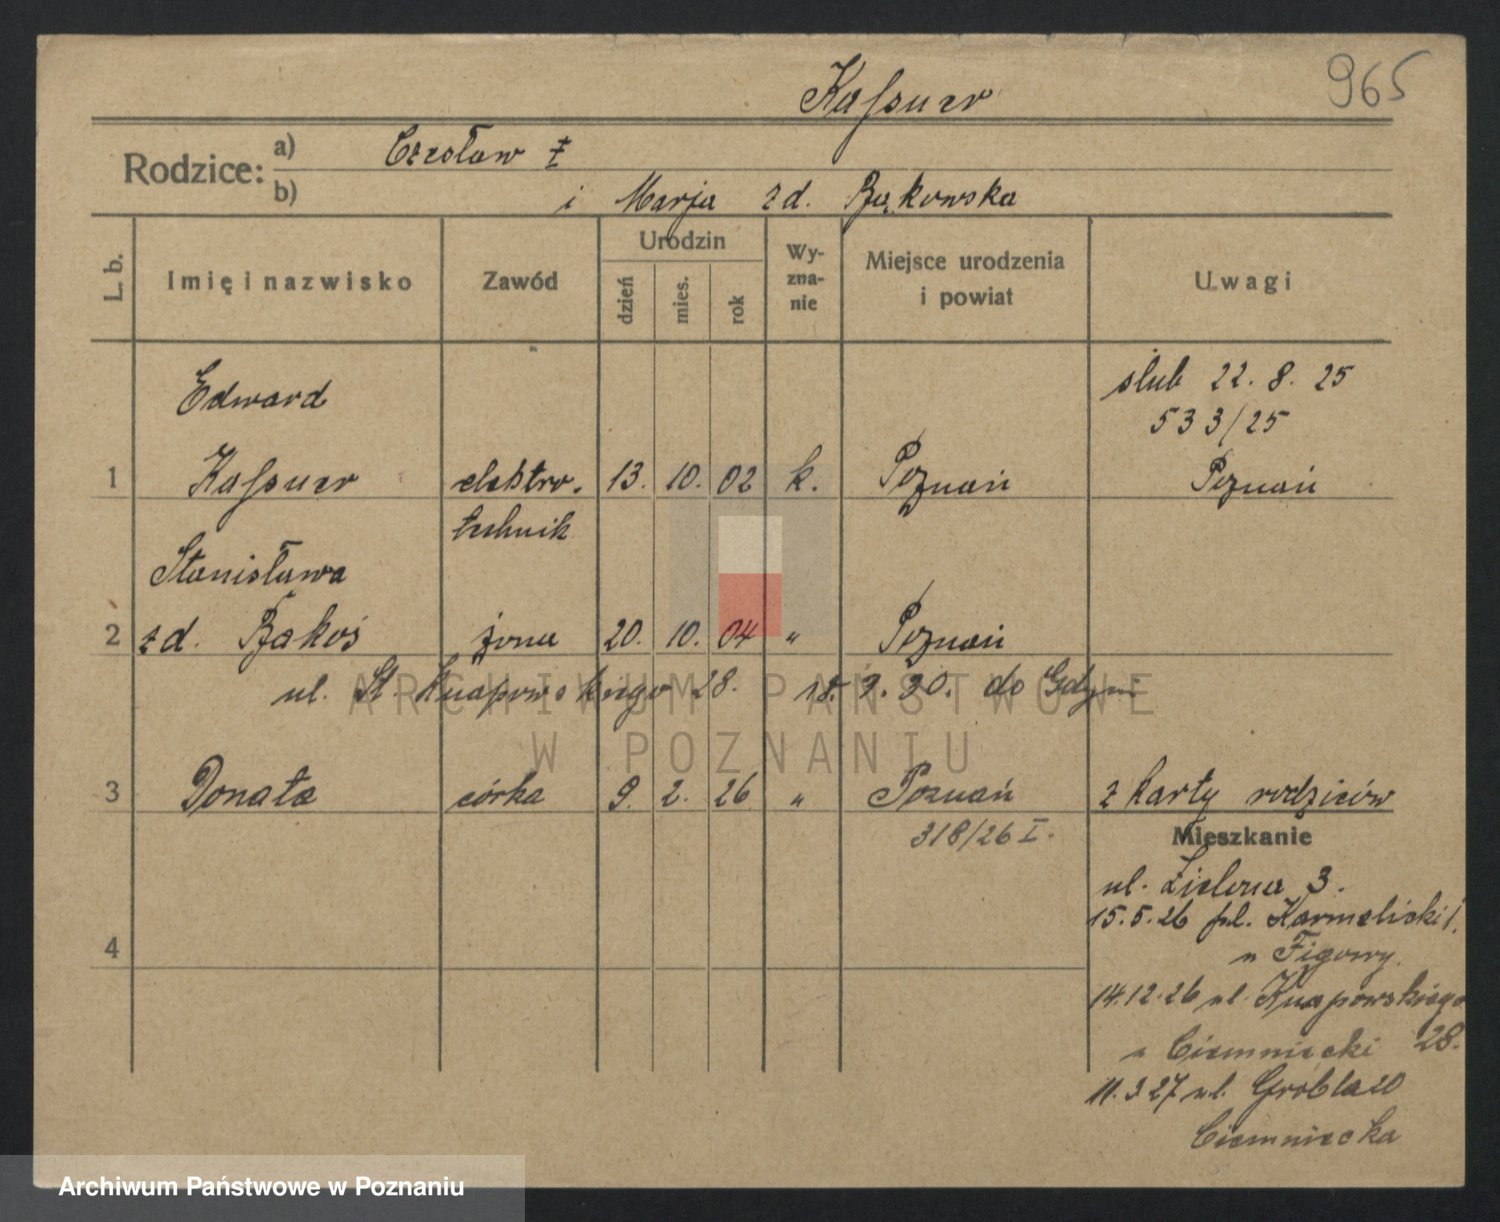 965
Kassner
Rodzice: a) Czesław
b) i Marja zd. Bąkowska
L. b. Imię i nazwisko Zawód Urodzin dzień mies. rok Wyznanie Miejsce urodzenia i powiat Uwagi
Edward ślub 22. 8. 25
533/25
1 Kassner elektro- 13. 10. 02 k. Poznań Poznań
technik
Stanisława
2 zd. Bąkoś żona 20. 10. 04 " Poznań
ul. St. Knapowskiego 28. 18. 9. 30. do Gdyni
3 Donata córka 9. 2. 26 " Poznań z karty rodziców
318/26 I.
Mieszkanie
ul. Zielona 3.
15.5.26 pl. Karmelicki 1.
4 u Figowy.
14.12.26 ul. Knapowskiego
28.
u Ciemniecki
11.3.27 ul. Grobla 20
Ciemniecka
ARCHIWUM PAŃSTWOWE
W POZNANIU
Archiwum Państwowe w Poznaniu